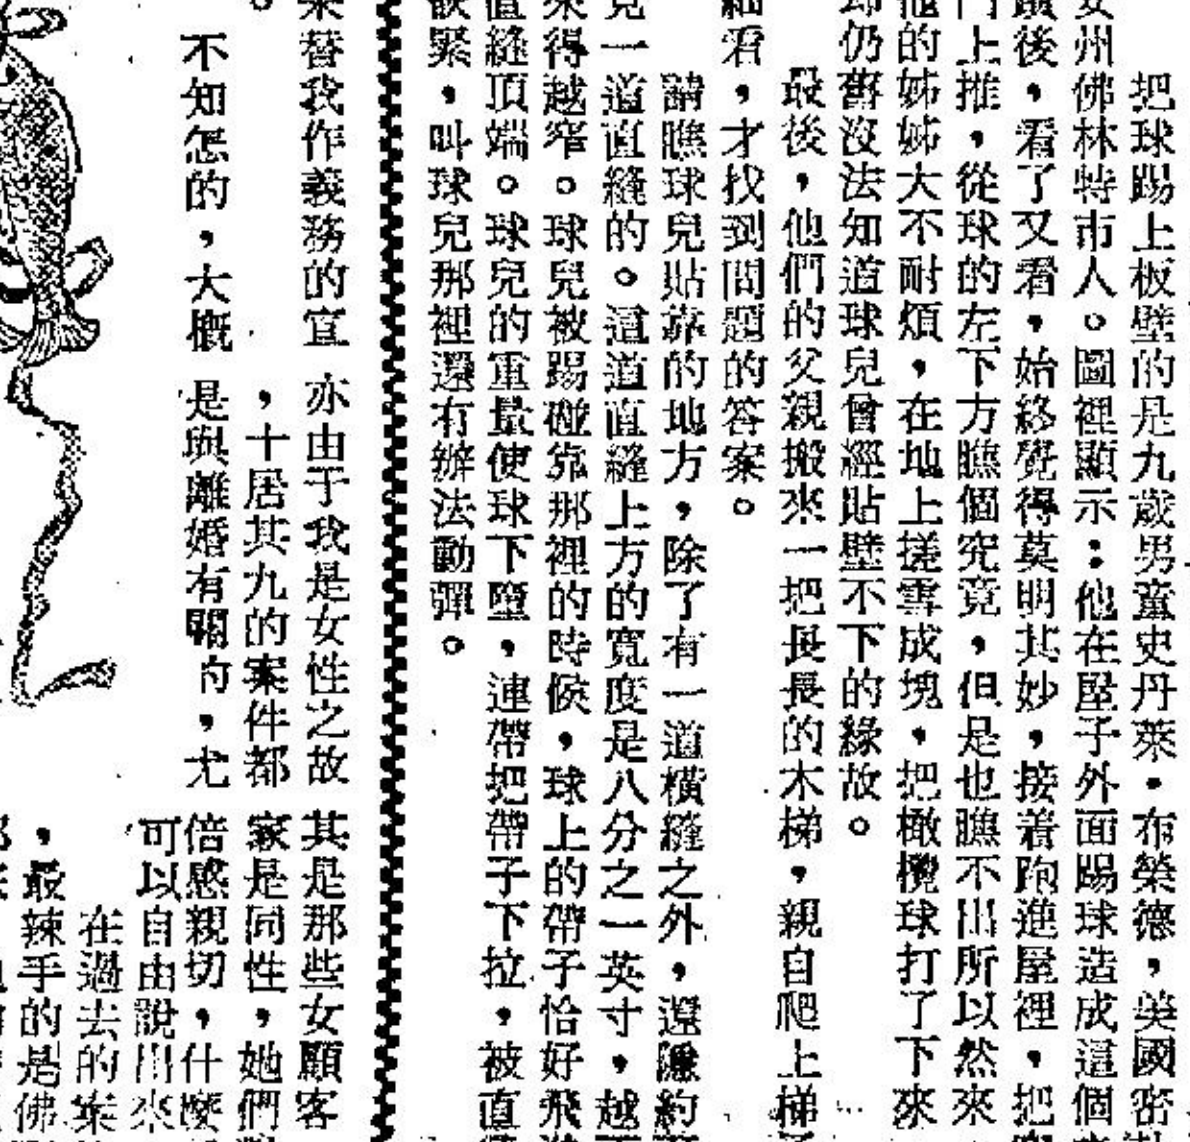 把球踢上板壁的是九歲男童史丹萊・布榮德，美國密
州佛林特市人。圖裡顯示：他在屋子外面踢球造成這個
蹟後，看了又看，始終覺得莫明其妙，接着跑進屋裡，把
門上推，從球的左下方瞧個究竟，但是也瞧不出所以然來
他的姊姊大不耐煩，在地上搓雪成塊，把橄欖球打了下來
却仍舊沒法知道球兒曾經貼壁不下的緣故。
最後，他們的父親搬來一把長長的木梯，親自爬上梯
細看，才找到問題的答案。
請瞧球兒貼靠的地方，除了有一道橫縫之外，還隱約
見一道直縫的。這道直縫上方的寬度是八分之一英寸，越
來得越窄。球兒被踢碰靠那裡的時候，球上的帶子恰好飛
直縫頂端。球兒的重量使球下墮，連帶把帶子下拉，被直
嵌緊，叫球兒那裡還有辦法動彈。
來替我作義務的宣
。
不知怎的，大概
亦由于我是女性之故
，十居其九的案件都
是與離婚有關的，尤
其是那些女顧客
家是同性，她們
倍感親切，什麼
可以自由說出來
在過去的案
，最辣手的是佛